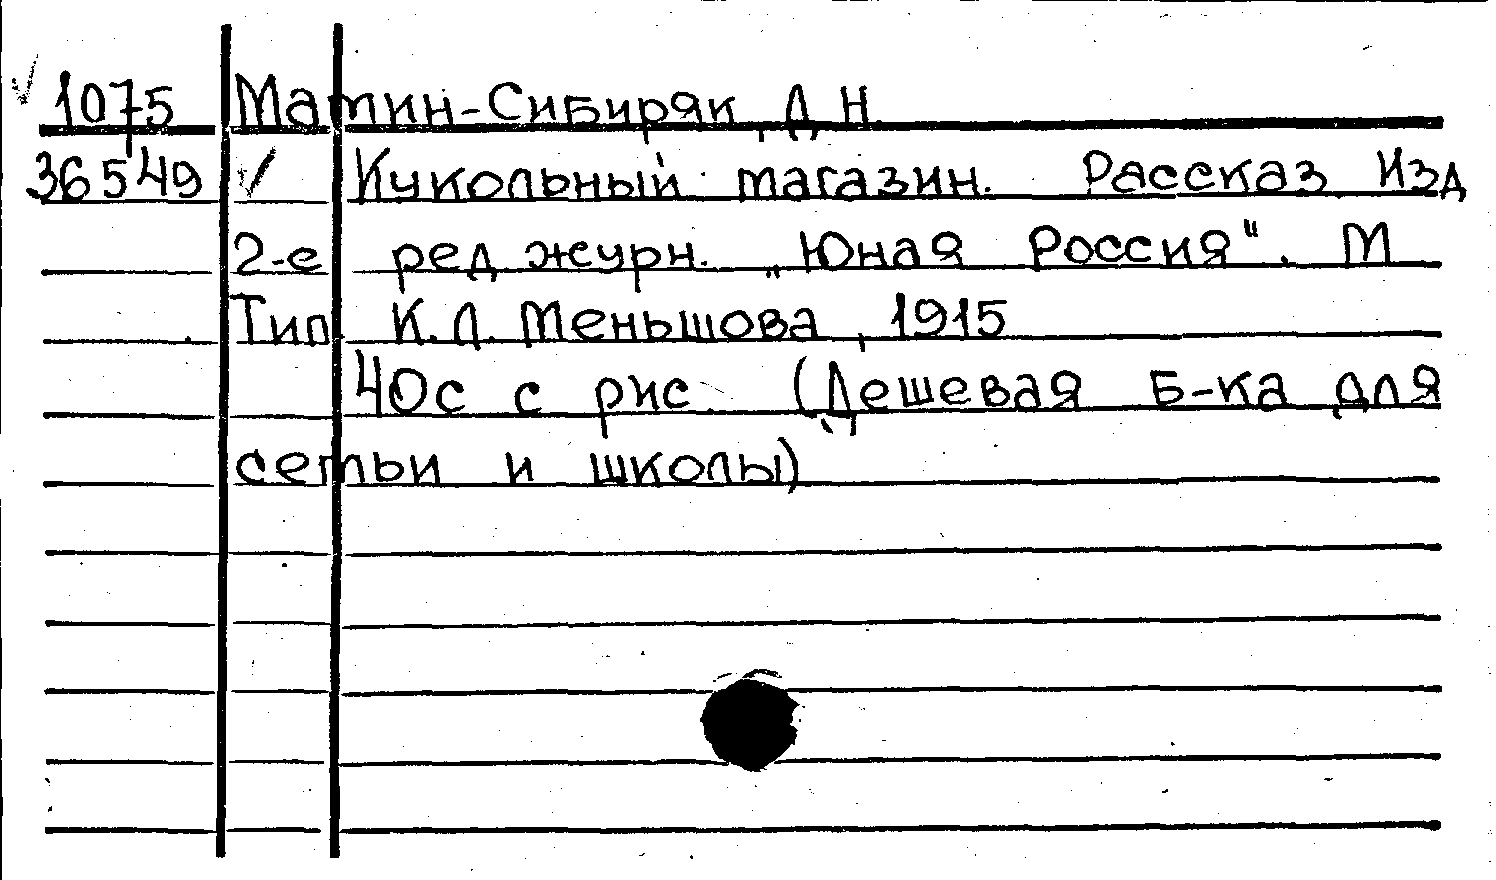 1075 Мамин-Сибиряк, Д Н
36549 Кукольный магазин. Рассказ Изд
2-е ред журн. „Юная Россия". М
Тип К.Л. Меньшова, 1915
40с с рис (Дешевая Б-ка для
семьи и школы)